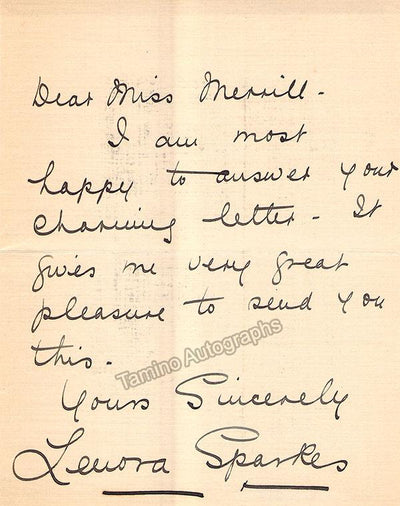 Dear Miss Merrill -
I am most
happy to answer your
charming letter - It
gives me very great
pleasure to send you
this -
Tamino Autographs
Yours Sincerely
Lenora Sparkes